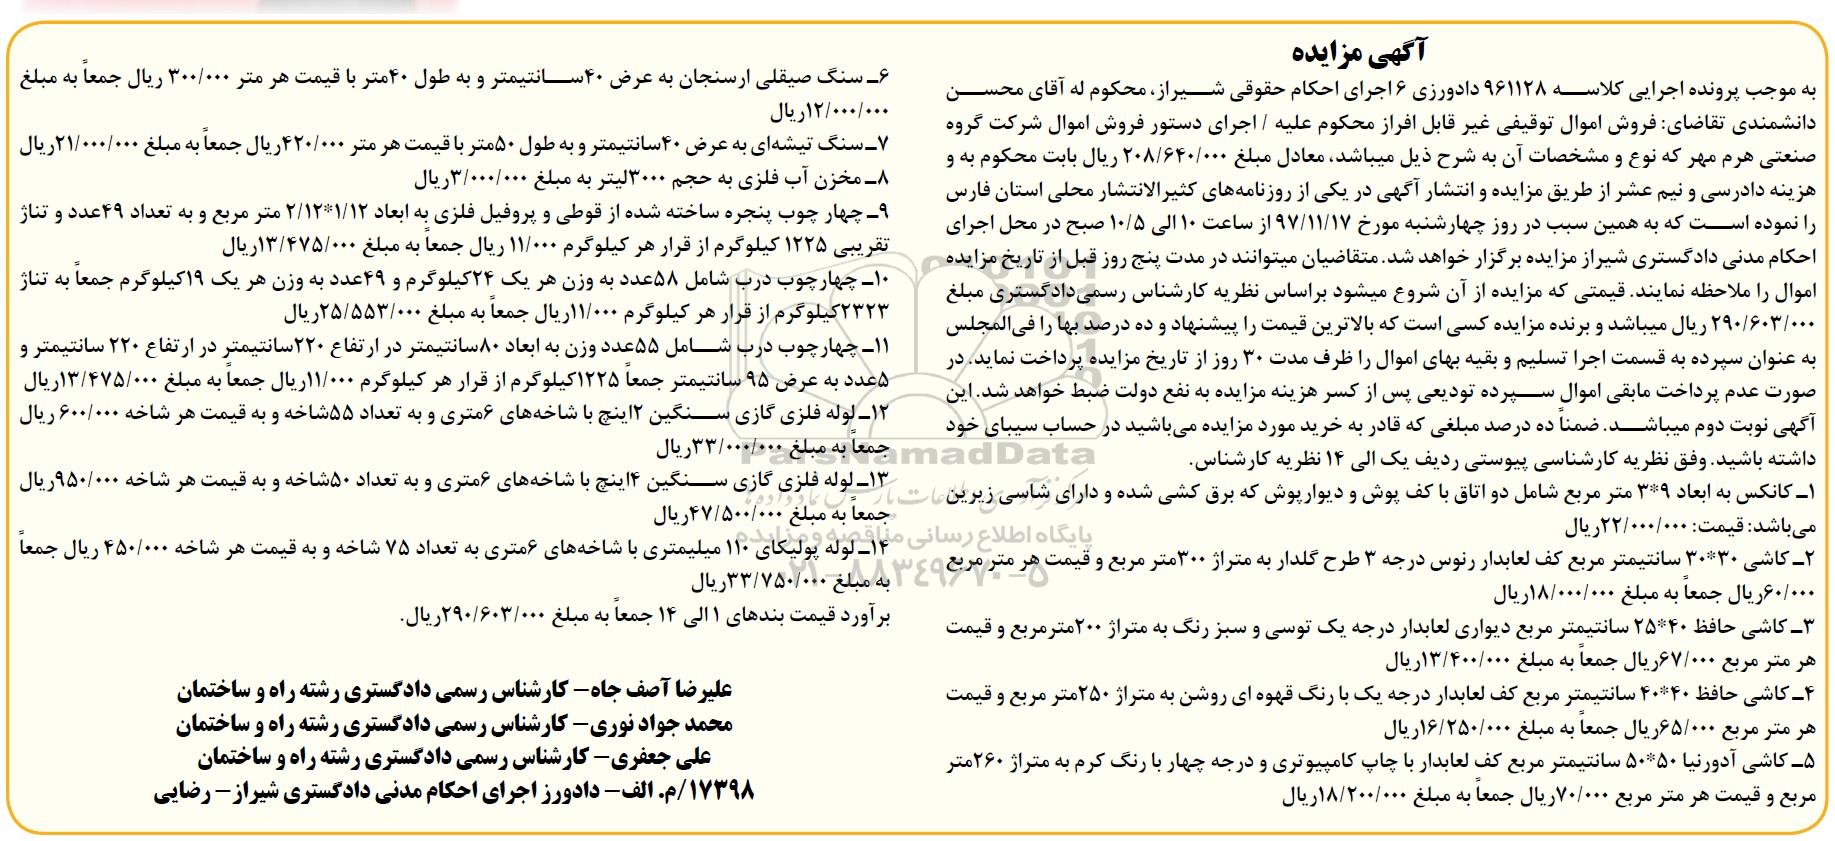 آگهی مزایده
به موجب پرونده اجرایی کلاسه ۹۶۱۱۲۸ دادورزی ۶ اجرای احکام حقوقی شیراز، محکوم له آقای محسن
دانشمندی تقاضای: فروش اموال توقیفی غیر قابل افراز محکوم علیه / اجرای دستور فروش اموال شرکت گروه
صنعتی هرم مهر که نوع و مشخصات آن به شرح ذیل میباشد، معادل مبلغ ۲۰۸/۶۴۰/۰۰۰ ریال بابت محکوم به و
هزینه دادرسی و نیم عشر از طریق مزایده و انتشار آگهی در یکی از روزنامه‌های کثیرالانتشار محلی استان فارس
را نموده است که به همین سبب در روز چهارشنبه مورخ ۹۷/۱۱/۱۷ از ساعت ۱۰ الی ۱۰/۵ صبح در محل اجرای
احکام مدنی دادگستری شیراز مزایده برگزار خواهد شد. متقاضیان میتوانند در مدت پنج روز قبل از تاریخ مزایده
اموال را ملاحظه نمایند. قیمتی که مزایده از آن شروع میشود براساس نظریه کارشناس رسمی‌دادگستری مبلغ
۲۹۰/۶۰۳/۰۰۰ ریال میباشد و برنده مزایده کسی است که بالاترین قیمت را پیشنهاد و ده درصد بها را فی‌المجلس
به عنوان سپرده به قسمت اجرا تسلیم و بقیه بهای اموال را ظرف مدت ۳۰ روز از تاریخ مزایده پرداخت نماید. در
صورت عدم پرداخت مابقی اموال سپرده تودیعی پس از کسر هزینه مزایده به نفع دولت ضبط خواهد شد. این
آگهی نوبت دوم میباشد. ضمناً ده درصد مبلغی که قادر به خرید مورد مزایده می‌باشید در حساب سیبای خود
داشته باشید. وفق نظریه کارشناسی پیوستی ردیف یک الی ۱۴ نظریه کارشناس.
۱ـ کانکس به ابعاد ۹*۳ متر مربع شامل دو اتاق با کف پوش و دیوارپوش که برق کشی شده و دارای شاسی زیرین
می‌باشد: قیمت: ۲۲/۰۰۰/۰۰۰ریال
۲ـ کاشی ۳۰*۳۰ سانتیمتر مربع کف لعابدار رنوس درجه ۳ طرح گلدار به متراژ ۳۰۰متر مربع و قیمت هر متر مربع
۶۰/۰۰۰ریال جمعاً به مبلغ ۱۸/۰۰۰/۰۰۰ریال
۳ـ کاشی حافظ ۴۰*۲۵ سانتیمتر مربع دیواری لعابدار درجه یک توسی و سبز رنگ به متراژ ۲۰۰مترمربع و قیمت
هر متر مربع ۶۷/۰۰۰ریال جمعاً به مبلغ ۱۳/۴۰۰/۰۰۰ریال
۴ـ کاشی حافظ ۴۰*۴۰ سانتیمتر مربع کف لعابدار درجه یک با رنگ قهوه ای روشن به متراژ ۲۵۰متر مربع و قیمت
هر متر مربع ۶۵/۰۰۰ریال جمعاً به مبلغ ۱۶/۲۵۰/۰۰۰ریال
۵ـ کاشی آدورنیا ۵۰*۵۰ سانتیمتر مربع کف لعابدار با چاپ کامپیوتری و درجه چهار با رنگ کرم به متراژ ۲۶۰متر
مربع و قیمت هر متر مربع ۷۰/۰۰۰ریال جمعاً به مبلغ ۱۸/۲۰۰/۰۰۰ریال
۶ـ سنگ صیقلی ارسنجان به عرض ۴۰سانتیمتر و به طول ۴۰متر با قیمت هر متر ۳۰۰/۰۰۰ ریال جمعاً به مبلغ
۱۲/۰۰۰/۰۰۰ریال
۷ـ سنگ تیشه‌ای به عرض ۴۰سانتیمتر و به طول ۵۰متر با قیمت هر متر ۴۲۰/۰۰۰ریال جمعاً به مبلغ ۲۱/۰۰۰/۰۰۰ریال
۸ـ مخزن آب فلزی به حجم ۳۰۰۰لیتر به مبلغ ۳/۰۰۰/۰۰۰ریال
۹ـ چهار چوب پنجره ساخته شده از قوطی و پروفیل فلزی به ابعاد ۱/۱۲*۲/۱۲ متر مربع و به تعداد ۴۹عدد و تناژ
تقریبی ۱۲۲۵ کیلوگرم از قرار هر کیلوگرم ۱۱/۰۰۰ ریال جمعاً به مبلغ ۱۳/۴۷۵/۰۰۰ریال
۱۰ـ چهارچوب درب شامل ۵۸عدد به وزن هر یک ۲۴کیلوگرم و ۴۹عدد به وزن هر یک ۱۹کیلوگرم جمعاً به تناژ
۲۳۲۳کیلوگرم از قرار هر کیلوگرم ۱۱/۰۰۰ریال جمعاً به مبلغ ۲۵/۵۵۳/۰۰۰ریال
۱۱ـ چهارچوب درب شامل ۵۵عدد وزن به ابعاد ۸۰سانتیمتر در ارتفاع ۲۲۰سانتیمتر در ارتفاع ۲۲۰ سانتیمتر و
۵عدد به عرض ۹۵ سانتیمتر جمعاً ۱۲۲۵کیلوگرم از قرار هر کیلوگرم ۱۱/۰۰۰ریال جمعاً به مبلغ ۱۳/۴۷۵/۰۰۰ریال
۱۲ـ لوله فلزی گازی سنگین ۲اینچ با شاخه‌های ۶متری و به تعداد ۵۵شاخه و به قیمت هر شاخه ۶۰۰/۰۰۰ ریال
جمعاً به مبلغ ۳۳/۰۰۰/۰۰۰ریال
۱۳ـ لوله فلزی گازی سنگین ۴اینچ با شاخه‌های ۶متری و به تعداد ۵۰شاخه و به قیمت هر شاخه ۹۵۰/۰۰۰ریال
جمعاً به مبلغ ۴۷/۵۰۰/۰۰۰ریال
۱۴ـ لوله پولیکای ۱۱۰ میلیمتری با شاخه‌های ۶متری به تعداد ۷۵ شاخه و به قیمت هر شاخه ۴۵۰/۰۰۰ ریال جمعاً
به مبلغ ۳۳/۷۵۰/۰۰۰ریال
برآورد قیمت بندهای ۱ الی ۱۴ جمعاً به مبلغ ۲۹۰/۶۰۳/۰۰۰ریال.
علیرضا آصف جاه- کارشناس رسمی دادگستری رشته راه و ساختمان
محمد جواد نوری- کارشناس رسمی دادگستری رشته راه و ساختمان
علی جعفری- کارشناس رسمی دادگستری رشته راه و ساختمان
۱۷۳۹۸/م. الف- دادورز اجرای احکام مدنی دادگستری شیراز- رضایی
ParsNamadData
پایگاه اطلاع رسانی مناقصه و مزایده
۰۲۱-۸۸۳۴۹۶۷۰-۵